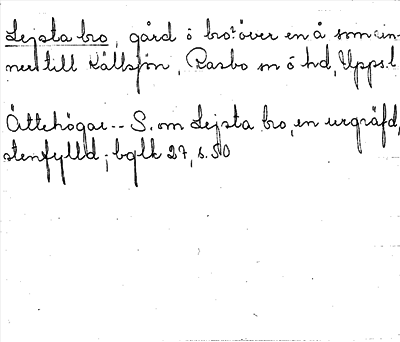 Lejsta bro, gård o bro över en å som rin-
ner till Källsjön, Rasbo sn o hd, Upps. l.
Ättehögar -- S. om Lejsta bro, en urgräfd,
stenfylld; bglk 27, s. 50